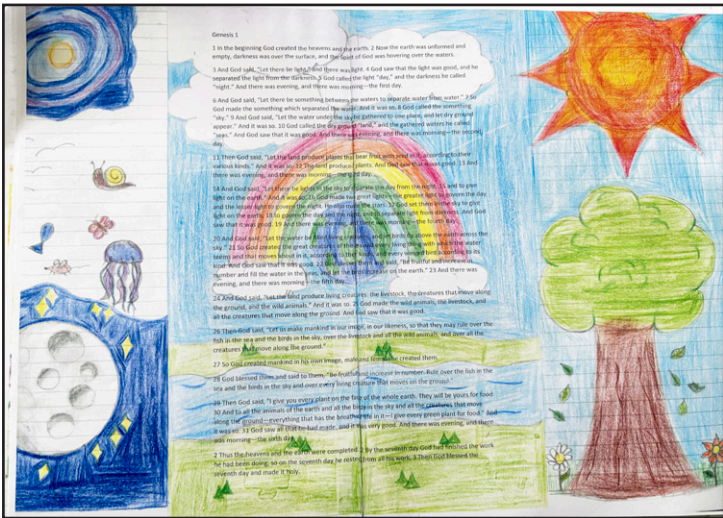 Genesis 1
1 In the beginning God created the heavens and the earth. 2 Now the earth was unformed and
empty, darkness was over the surface, and the Spirit of God was hovering over the waters.
3 And God said, "Let there be light," and there was light. 4 God saw that the light was good, and he
separated the light from the darkness. 5 God called the light "day," and the darkness he called
"night." And there was evening, and there was morning—the first day.
6 And God said, "Let there be something between the waters to separate water from water." 7 So
God made the something which separated the water. And it was so. 8 God called the something
"sky." 9 And God said, "Let the water under the sky be gathered to one place, and let dry ground
appear." And it was so. 10 God called the dry ground "land," and the gathered waters he called
"seas." And God saw that it was good. And there was evening, and there was morning—the second
day.
11 Then God said, "Let the land produce plants that bear fruit with seed in it, according to their
various kinds." And it was so. 12 The land produced plants. And God saw that it was good. 13 And
there was evening, and there was morning—the third day.
14 And God said, "Let there be lights in the sky to separate the day from the night, 15 and to give
light on the earth." And it was so. 16 God made two great lights—the greater light to govern the day
and the lesser light to govern the night. He also made the stars. 17 God set them in the sky to give
light on the earth, 18 to govern the day and the night, and to separate light from darkness. And God
saw that it was good. 19 And there was evening, and there was morning—the fourth day.
20 And God said, "Let the water be filled with living creatures, and let birds fly above the earth across the
sky." 21 So God created the great creatures of the sea and every living thing with which the water
teems and that moves about in it, according to their kinds, and every winged bird according to its
kind. And God saw that it was good. 22 God blessed them and said, "Be fruitful and increase in
number and fill the water in the seas, and let the birds increase on the earth." 23 And there was
evening, and there was morning—the fifth day.
24 And God said, "Let the land produce living creatures: the livestock, the creatures that move along
the ground, and the wild animals." And it was so. 25 God made the wild animals, the livestock, and
all the creatures that move along the ground. And God saw that it was good.
26 Then God said, "Let us make mankind in our image, in our likeness, so that they may rule over the
fish in the sea and the birds in the sky, over the livestock and all the wild animals, and over all the
creatures that move along the ground."
27 So God created mankind in his own image, male and female he created them.
28 God blessed them and said to them, "Be fruitful and increase in number. Rule over the fish in the
sea and the birds in the sky and over every living creature that moves on the ground."
29 Then God said, "I give you every plant on the face of the whole earth. They will be yours for food.
30 And to all the animals of the earth and all the birds in the sky and all the creatures that move
along the ground—everything that has the breath of life in it—I give every green plant for food." And
it was so. 31 God saw all that he had made, and it was very good. And there was evening, and there
was morning—the sixth day.
2 Thus the heavens and the earth were completed. 2 By the seventh day God had finished the work
he had been doing; so on the seventh day he resting from all his work. 3 Then God blessed the
seventh day and made it holy.